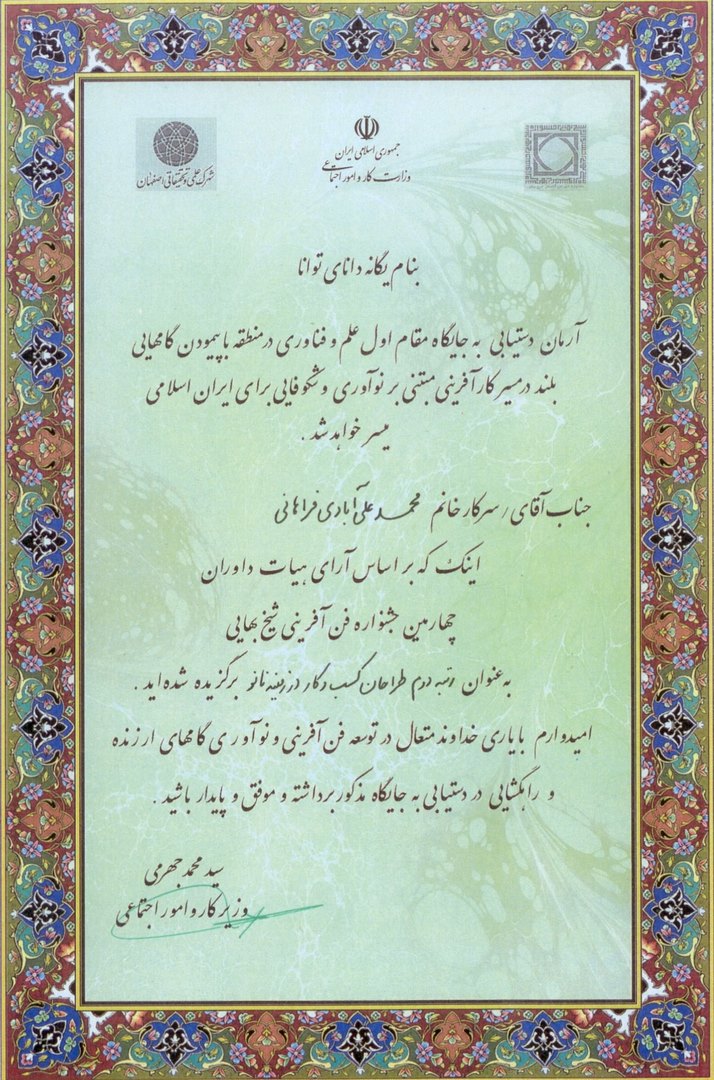 شهرک علمی و تحقیقاتی اصفهان
جمهوری اسلامی ایران
وزارت کار و امور اجتماعی
بنام یگانه دانای توانا
آرمان دستیابی به جایگاه مقام اول علم و فناوری در منطقه با پیمودن گامهایی
بلند در مسیر کارآفرینی مبتنی بر نوآوری و شکوفایی برای ایران اسلامی
میسر خواهد شد .
جناب آقای / سرکار خانم محمد علی آبادی فراهانی
اینک که بر اساس آرای هیات داوران
چهارمین جشنواره فن آفرینی شیخ بهایی
به عنوان رتبه دوم طراحان کسب و کار در زمینه نانو برگزیده شده اید .
امیدوارم با یاری خداوند متعال در توسعه فن آفرینی و نوآوری گامهای ارزنده
و راهگشایی در دستیابی به جایگاه مذکور برداشته و موفق و پایدار باشید .
سید محمد جهرمی
وزیر کار و امور اجتماعی